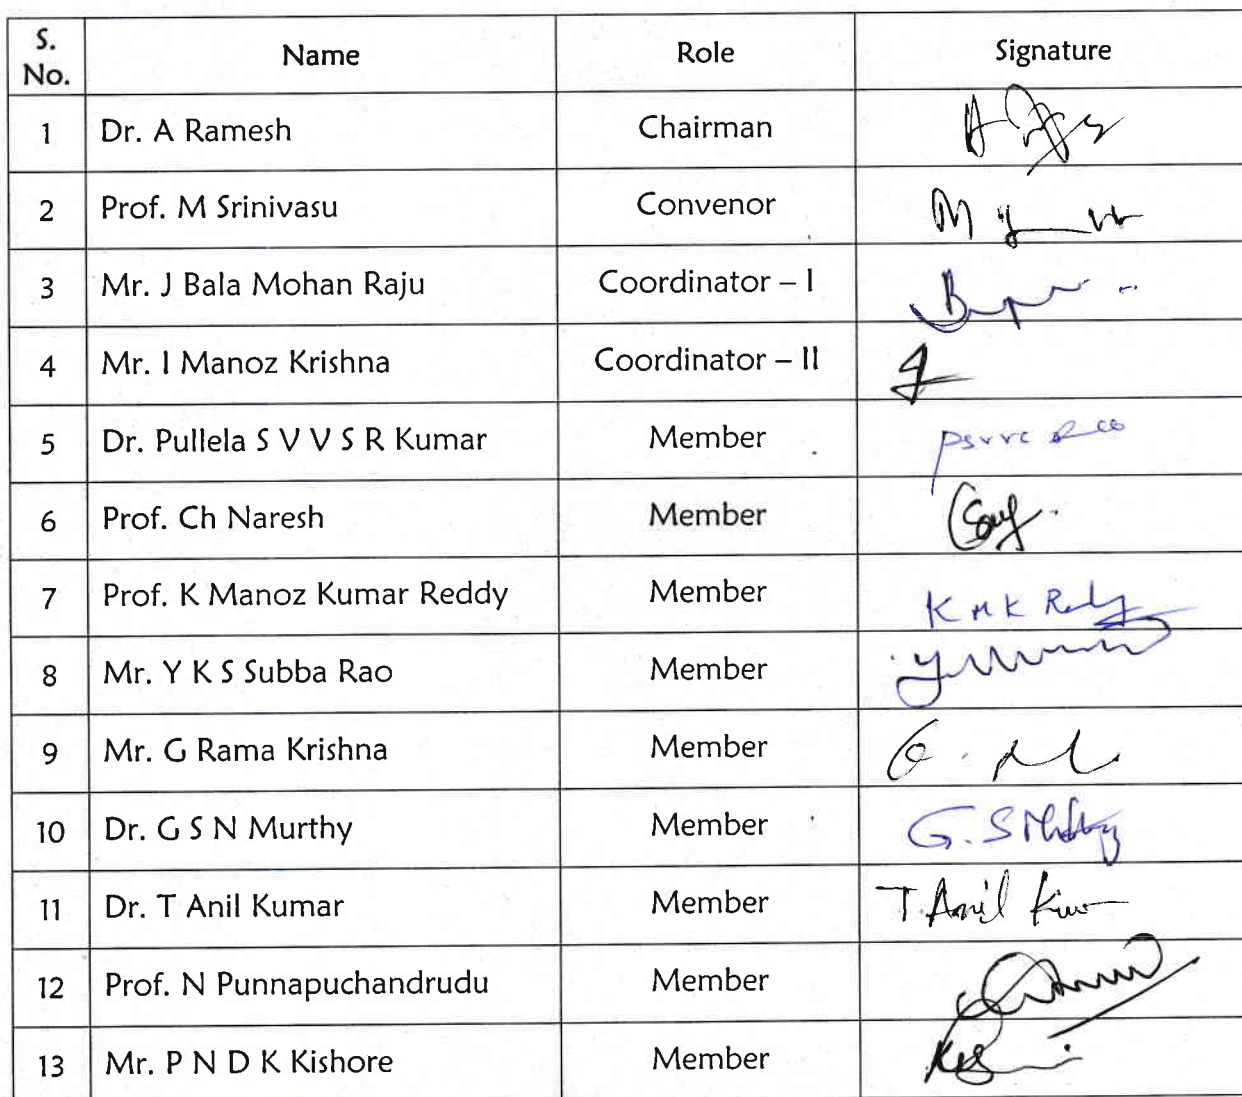 S. No. Name Role Signature
1 Dr. A Ramesh Chairman
2 Prof. M Srinivasu Convenor
3 Mr. J Bala Mohan Raju Coordinator – I
4 Mr. I Manoz Krishna Coordinator – II
5 Dr. Pullela S V V S R Kumar Member
6 Prof. Ch Naresh Member
7 Prof. K Manoz Kumar Reddy Member K M K Reddy
8 Mr. Y K S Subba Rao Member
9 Mr. G Rama Krishna Member
10 Dr. G S N Murthy Member
11 Dr. T Anil Kumar Member T Anil Kumar
12 Prof. N Punnapuchandrudu Member
13 Mr. P N D K Kishore Member